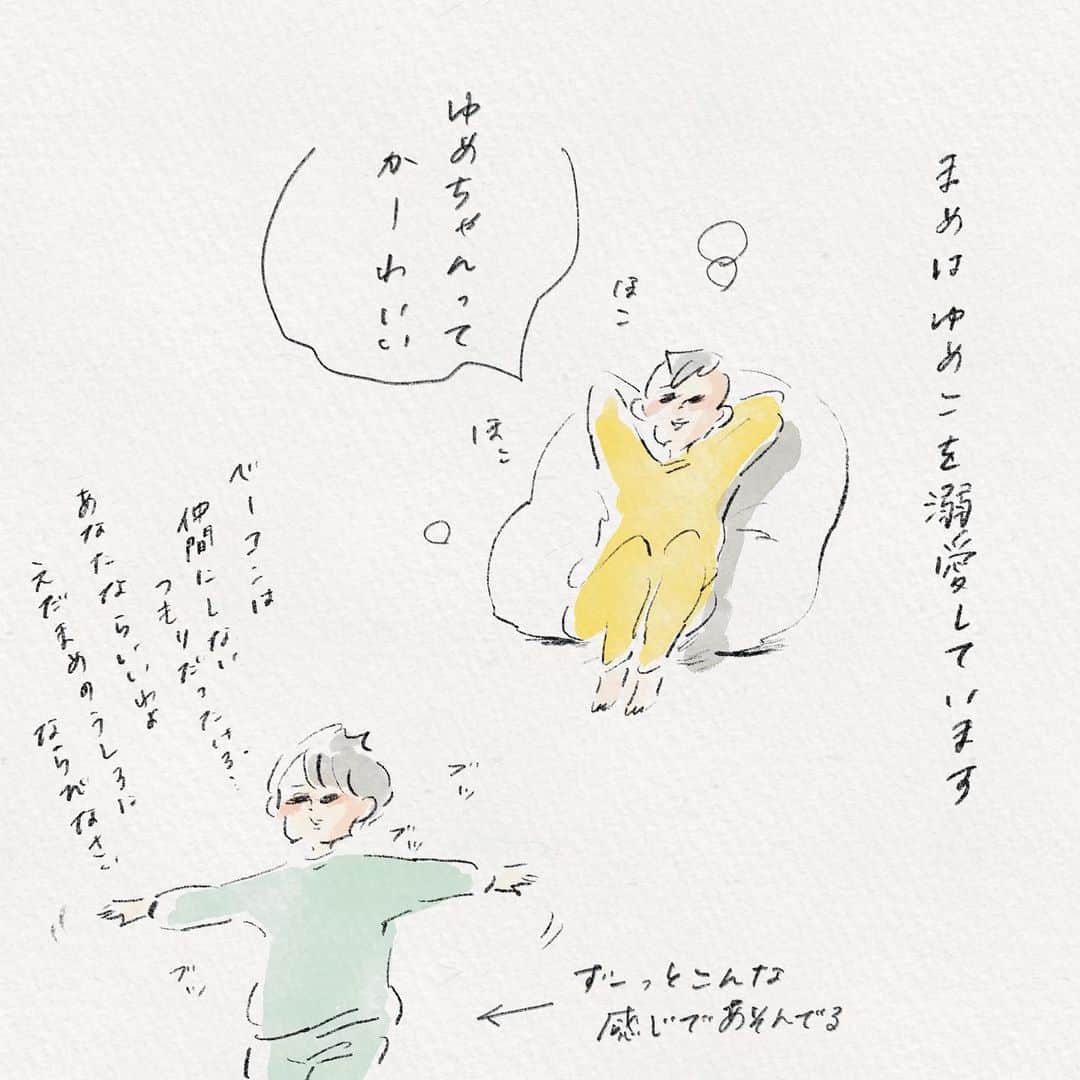 まめはゆめこを溺愛しています
ゆめちゃんって
かーわいい
ほこ
ほこ
べーコンは
仲間にしない
つもりだったけろ…
あなたならいいわよ
えだまめのうしろに
ならびなさい
ブツ
ブツ
ブツ
ずーっとこんな
感じであそんでる